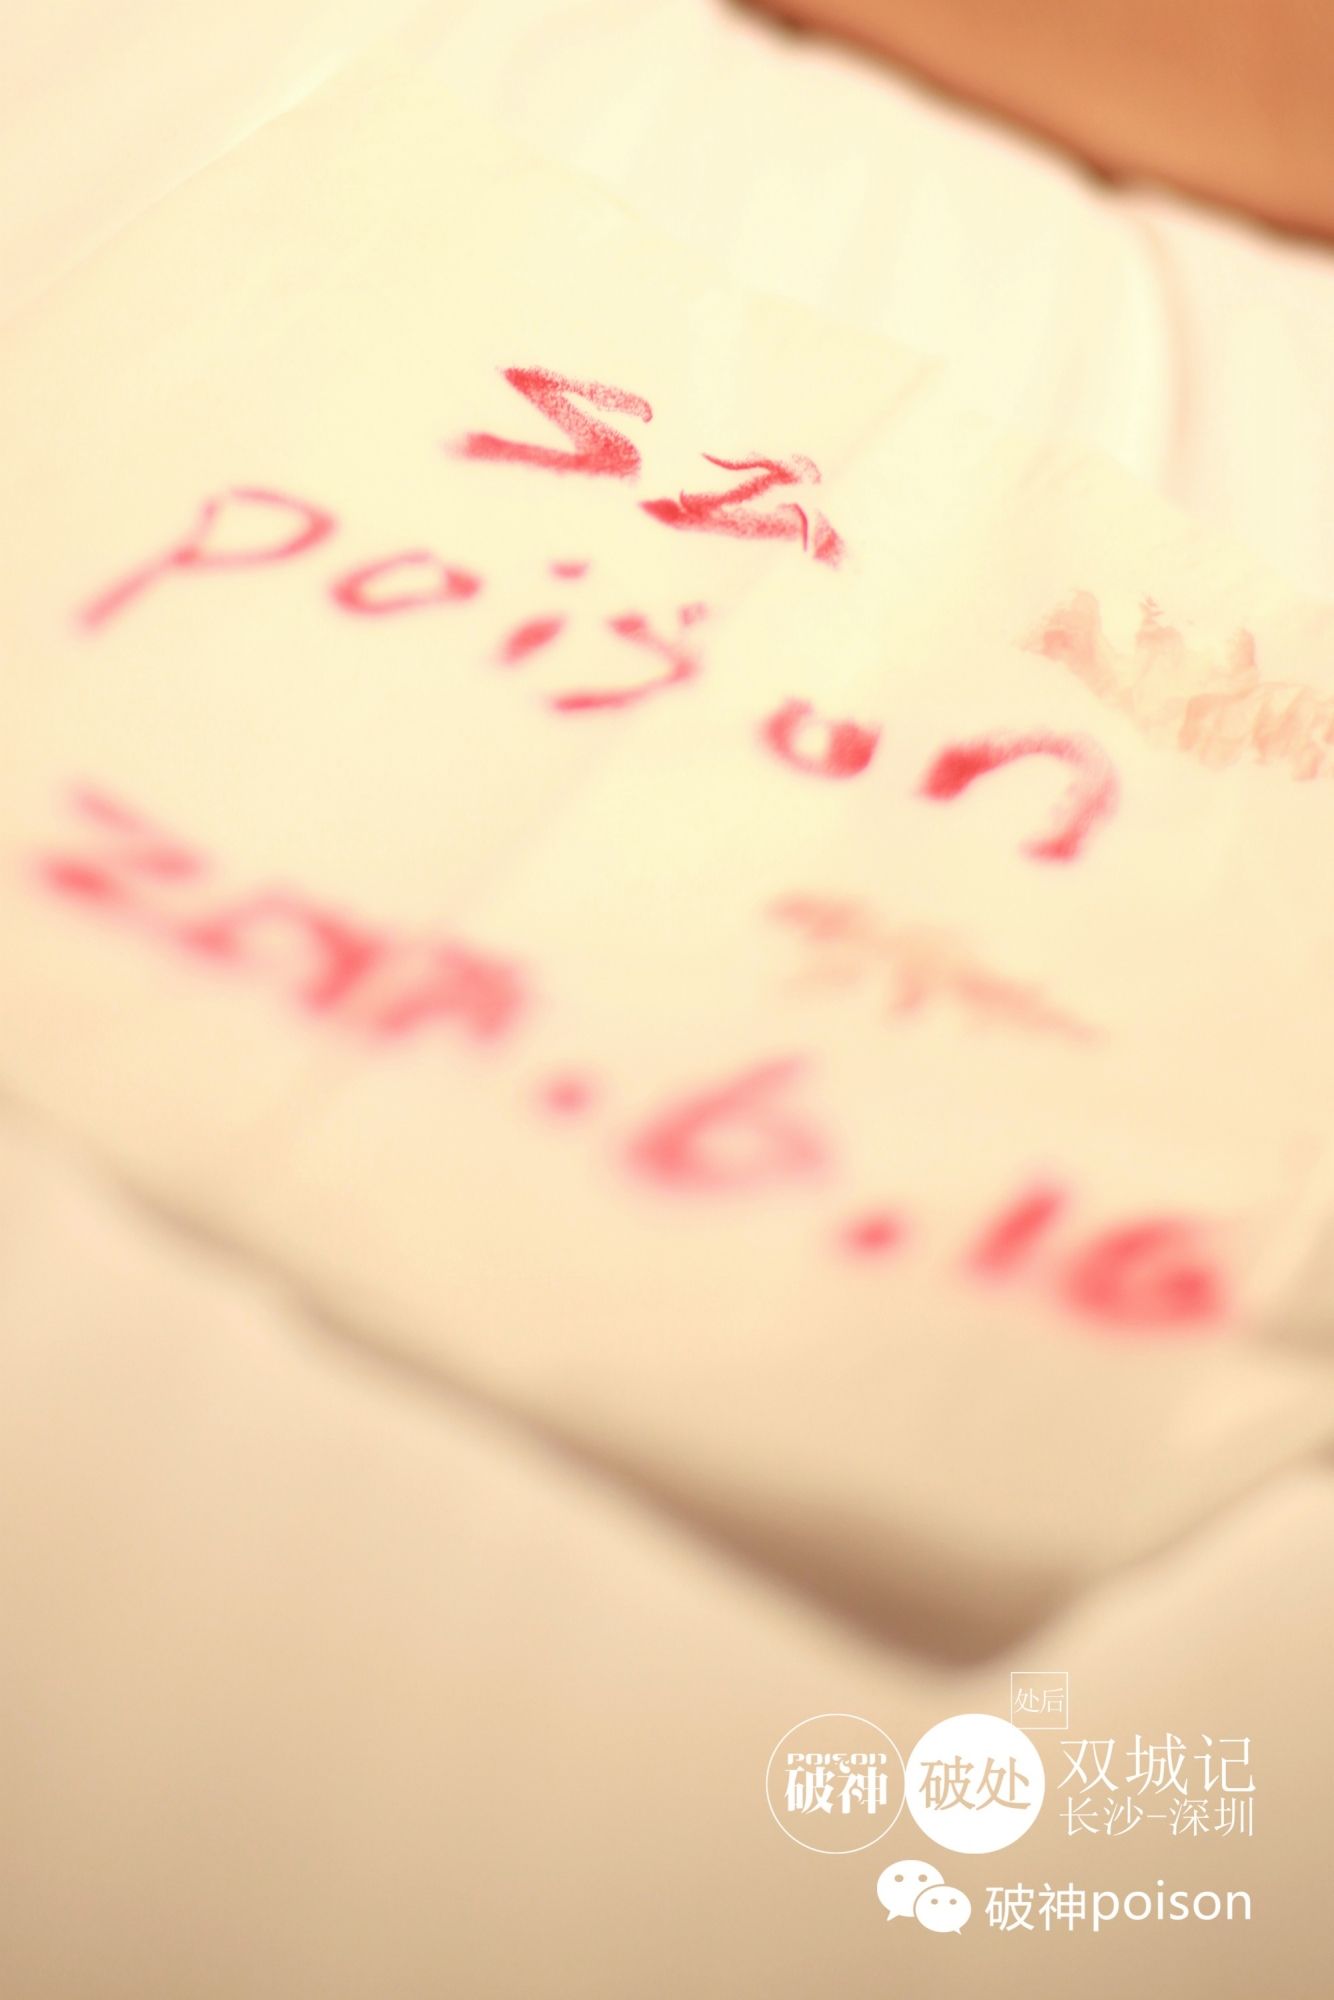 SZ
poison
2017.6.16
处后
poison
破神
破处
双城记
长沙-深圳
破神poison